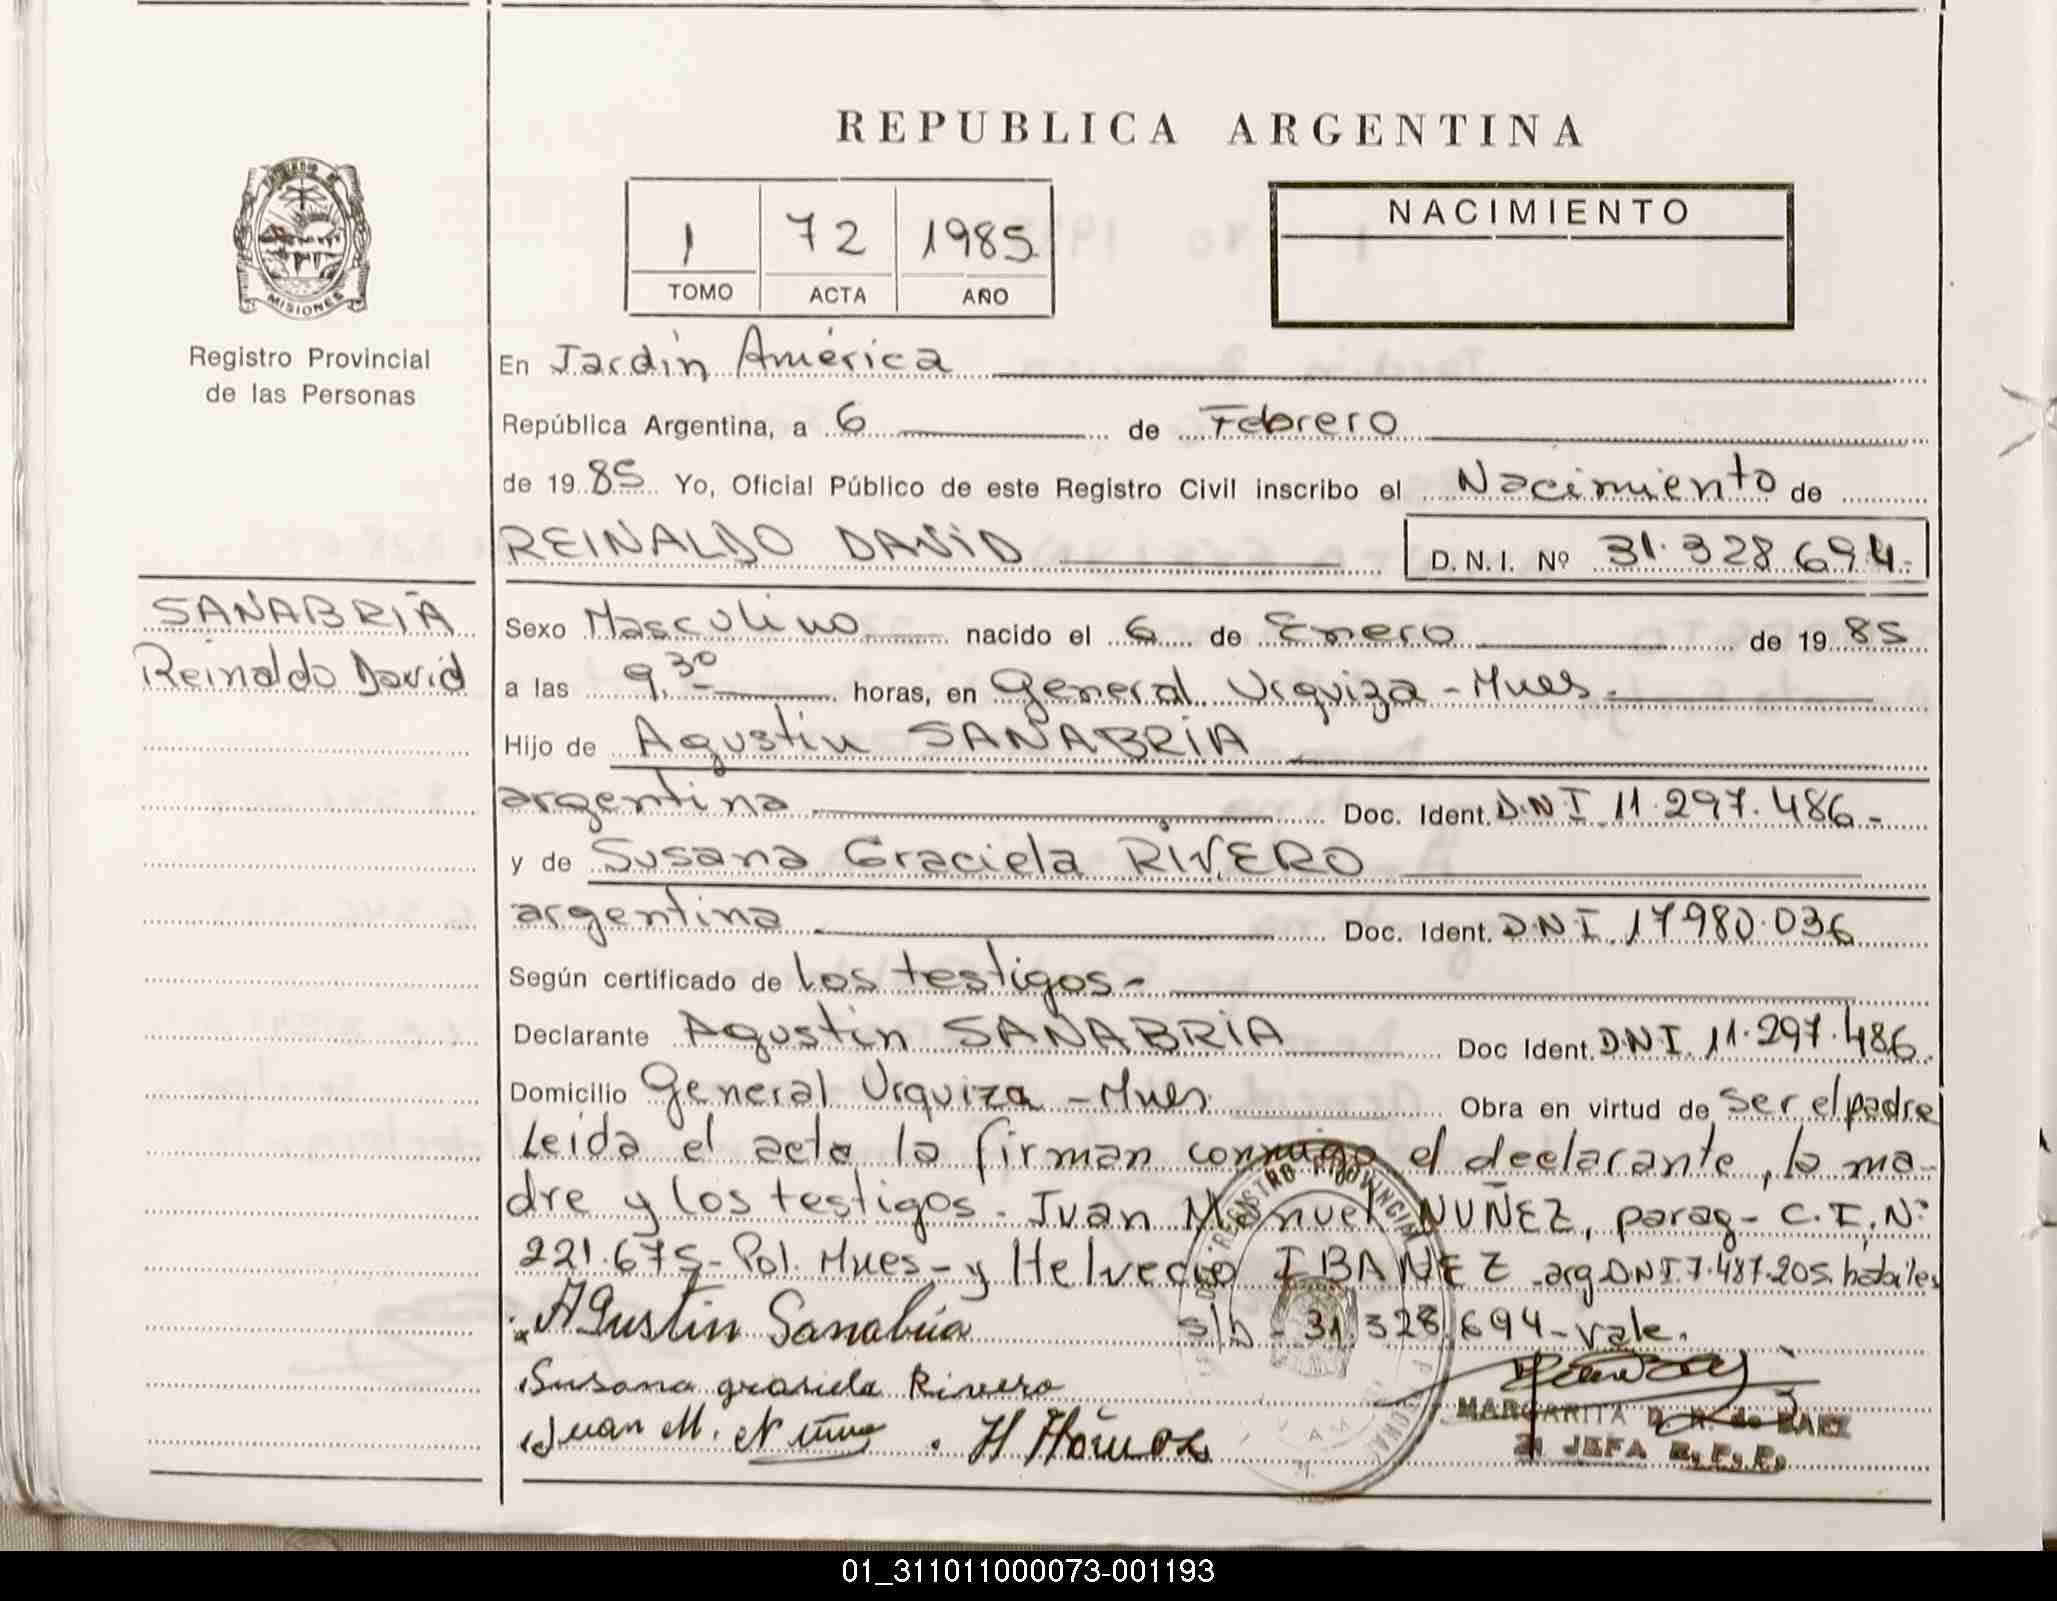 REPUBLICA ARGENTINA
1 72 1985
TOMO ACTA AÑO
NACIMIENTO
MISIONES
Registro Provincial
de las Personas
En Jardín América
República Argentina, a 6 de Febrero
de 1985 Yo, Oficial Público de este Registro Civil inscribo el Nacimiento de
REINALDO DAVID D.N.I. Nº 31.328.694.-
SANABRIA
Reinaldo David
Sexo Masculino nacido el 6 de Enero de 1985
a las 9,30 horas, en General Urquiza - Mnes.
Hijo de Agustin SANABRIA
argentina Doc. Ident. D.N.I. 11.297.486-
y de Susana Graciela RIVERO
argentina Doc. Ident. D.N.I. 17980.036
Según certificado de los testigos-
Declarante Agustin SANABRIA Doc Ident. D.N.I. 11.297.486
Domicilio General Urquiza - Mnes. Obra en virtud de ser el padre
Leida el acta la firman conmigo el declarante, la ma-
dre y los testigos. Juan Manuel NUÑEZ, parag- C.I.Nº
221.675- Pol. Mnes- y Helvecio IBAÑEZ arg D.N.I. 7.487.205. hábiles
s/b - 31.328.694 - vale.
Agustin Sanabria
Susana grasiela Rivero
Juan M. Nuñez
REGISTRO PROVINCIAL
MARGARITA D. N. de BAEZ
JEFA
01_311011000073-001193